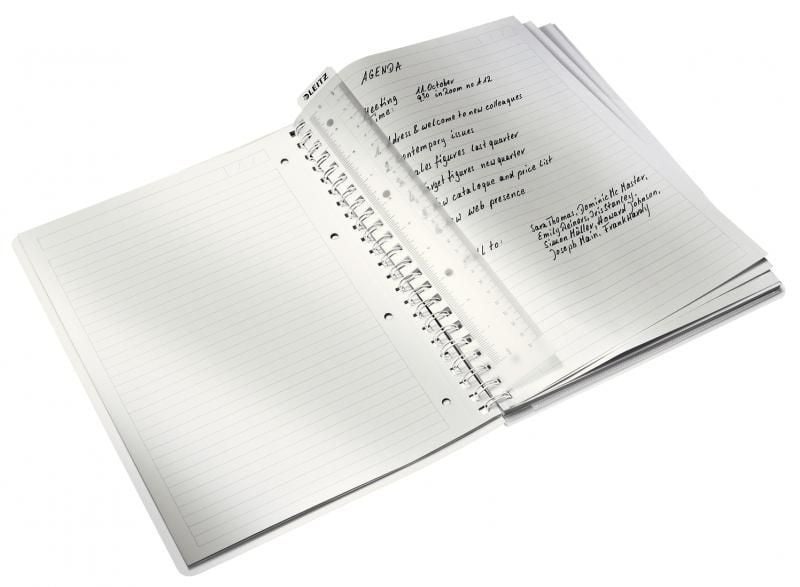 LEITZ
AGENDA
Meeting 11. October
Time: 930 in Room no 112
address & welcome to new colleagues
contempory issues
sales figures last quarter
target figures new quarter
new catalogue and price list
new web presence
to:
Sara Thomas, Dominic Mc Master,
Emily Reiners, Iris Stanley,
Simon Müller, Howard Johnson,
Joseph Main, Frank Hardy